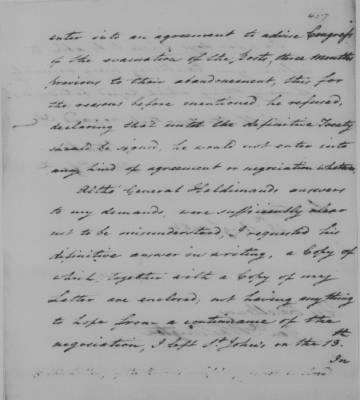 457
enter into an agreement to advise Congress
of the evacuation of the Posts, three months
previous to their abandonment, this for
the reasons before mentioned he refused,
declaring that until the definitive Treaty
should be signed, he would not enter into
any kind of agreement or negociation whatever.
Altho General Haldimands answers
to my demands were sufficiently clear
not to be misunderstood, I requested his
definitive answer in writing, a Copy of
which together with a Copy of my
Letter are enclosed; not having anything
to hope from a continuance of the
negociation, I left St. John's, on the 13th
In